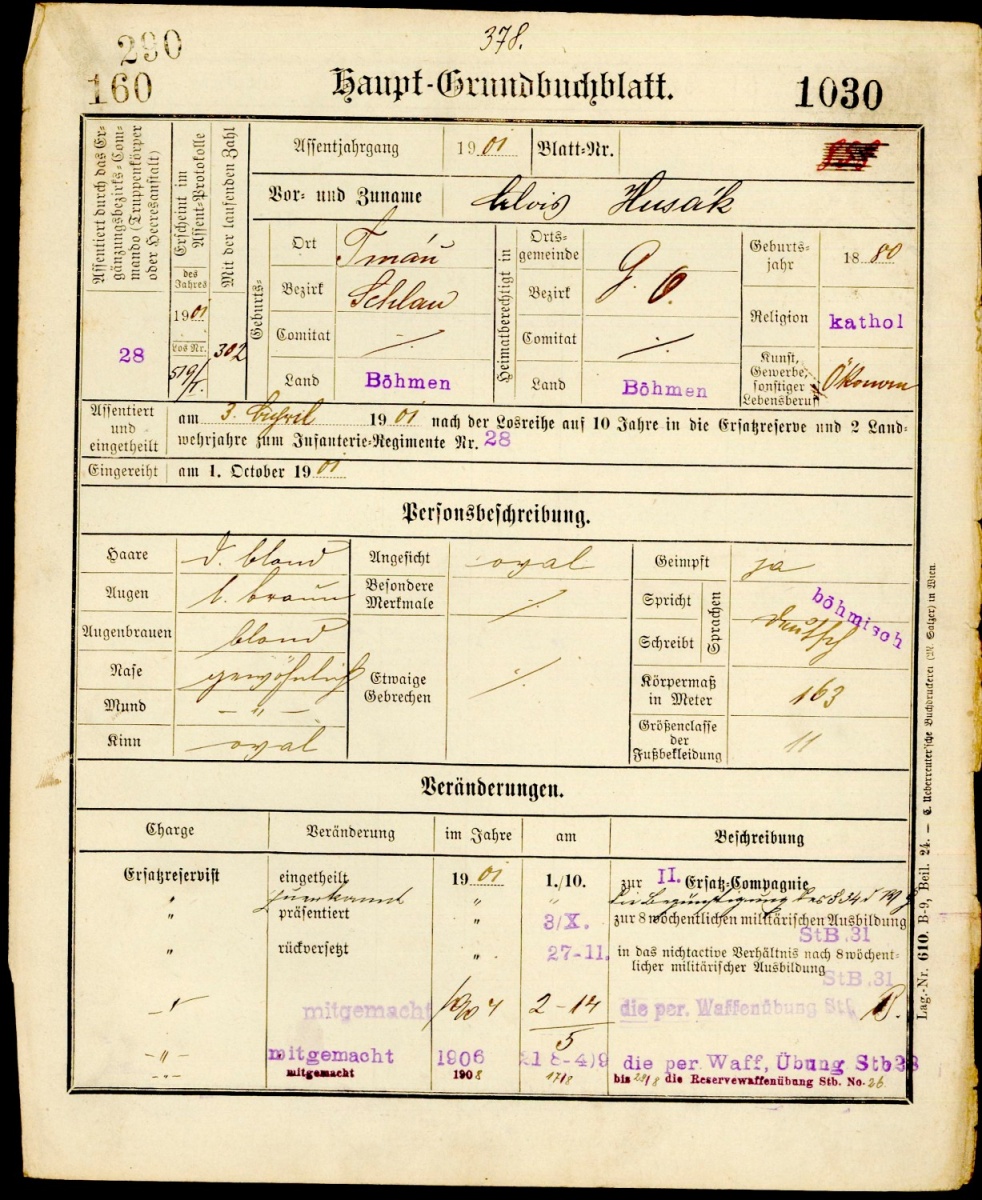 290
378.
160
Haupt-Grundbuchblatt.
1030
Assentiert durch das Er-
gänzungsbezirks-Com-
mando (Truppenkörper
oder Heeresanstalt)
28
Erscheint im
Assent-Protokolle
des
Jahres
1901
Los Nr.
Mit der laufenden Zahl
302
Assentjahrgang 1901 Blatt-Nr.
Vor- und Zuname Alois Husák
Geburts-
Ort Tmáň
Bezirk Schlan
Comitat ·/·
Land Böhmen
Heimatberechtigt in
Orts-
gemeinde
Bezirk G. O.
Comitat ·/·
Land Böhmen
Geburts-
jahr 1880
Religion kathol
Kunst,
Gewerbe,
sonstiger
Lebensberuf Ökonom
Assentiert
und
eingetheilt
am 3. April 1901 nach der Losreihe auf 10 Jahre in die Ersatzreserve und 2 Land-
wehrjahre zum Infanterie-Regimente Nr. 28
Eingereiht am 1. October 1901
Personsbeschreibung.
Haare d. blond
Augen l. braun
Augenbrauen blond
Nase gewöhnlich
Mund – " –
Kinn oval
Angesicht oval
Besondere
Merkmale ·/·
Etwaige
Gebrechen ·/·
Geimpft ja
Spricht
Schreibt
Sprachen
böhmisch
deutsch
Körpermaß
in Meter 163
Größenclasse
der
Fußbekleidung 11
Veränderungen.
Charge Veränderung im Jahre am Beschreibung
Ersatzreservist eingetheilt 1901 1./10. zur II. Ersatz-Compagnie
" zuerkannt " " die Begünstigung des § 34 d W G
" präsentiert " 3/X. zur 8 wöchentlichen militärischen Ausbildung
StB.31
" rückversetzt " 27-11. in das nichtactive Verhältnis nach 8 wöchent-
licher militärischer Ausbildung
StB.31
mitgemacht 2-14/5 die per. Waffenübung
–"– mitgemacht 1906 21 8-4)9 die per. Waff, Übung Stb 28
–"– mitgemacht 1908 17/8 bis 29/8 die Reservewaffenübung Stb. No. 26
Lag.-Nr. 610. B-9, Beil. 24. — C. Ueberreuter'sche Buchdruckerei (M. Salzer) in Wien.